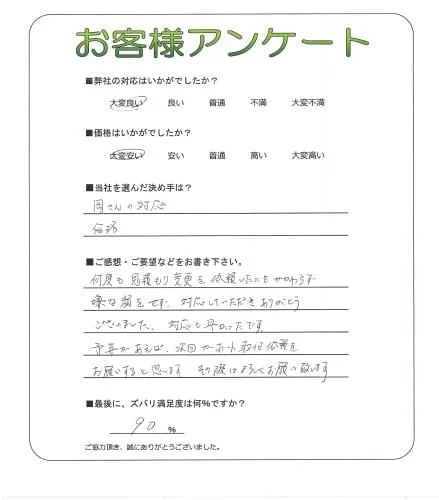 お客様アンケート
■弊社の対応はいかがでしたか?
大変良い 良い 普通 不満 大変不満
■価格はいかがでしたか?
大変安い 安い 普通 高い 大変高い
■当社を選んだ決め手は?
岡さんの対応
価格
■ご感想・ご要望などをお書き下さい。
何度も見積もり変更を依頼したにもかかわらず
嫌な顔をせず、対応していただきありがとう
ございました。対応も早かったです。
予算があえば、次回カーポート取付依頼を
お願いすると思います その際はよろしくお願い致します
■最後に、ズバリ満足度は何%ですか?
90 %
ご協力頂き、誠にありがとうございました。